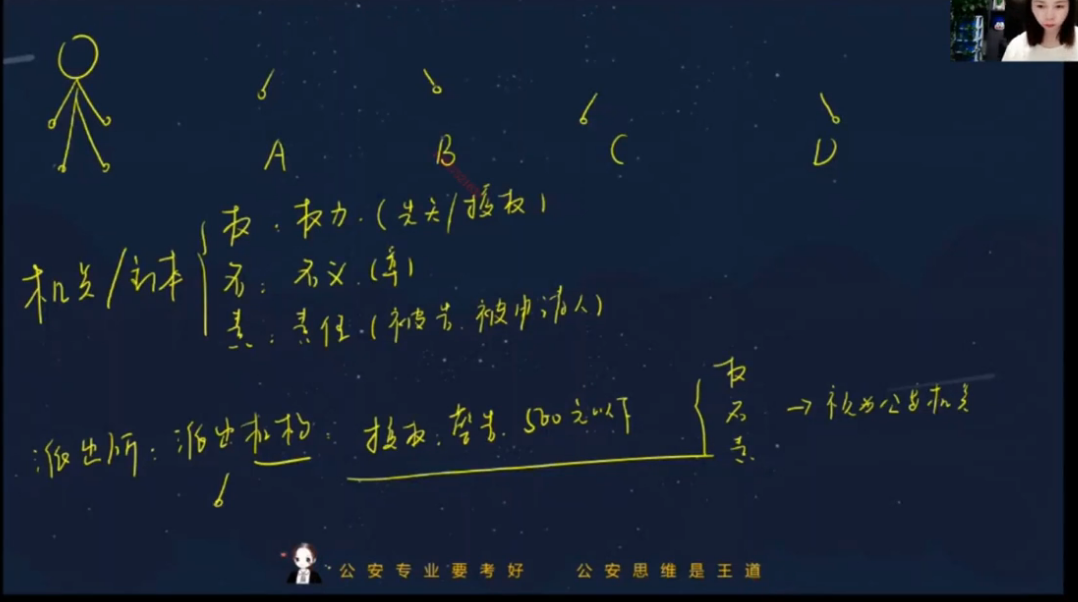 A B C D
权：权力.（先天/授权）
机关/主体
名：名义.（章）
责：责任.（被告.被申请人）
权
派出所：派出机构：授权：警告.500元以下 名 → 视为公安机关
责
公安专业要考好 公安思维是王道